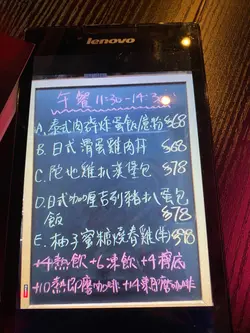 lenovo
午餐 11:30-14:3
A. 泰式肉碎煎蛋飯/撈粉 $68
B. 日式滑蛋雞肉丼 $68
C. 脆地雞扒漢堡包 $78
D. 日式咖喱吉列豬扒蛋包
飯 $78
E. 柚子蜜糖燒春雞件 $98
+4熱飲 +6凍飲 +9
+10熱即磨咖啡 +14凍即磨咖啡